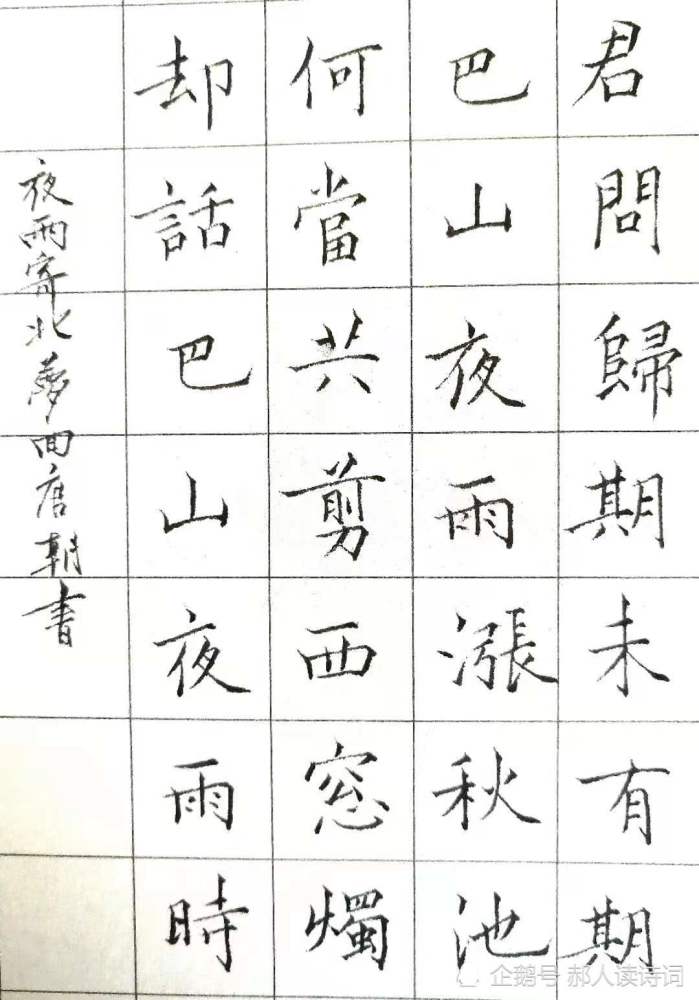 君問歸期未有期
巴山夜雨漲秋池
何當共剪西窓燭
却話巴山夜雨時
夜雨寄北夢回唐朝書
企鹅号 郝人读诗词